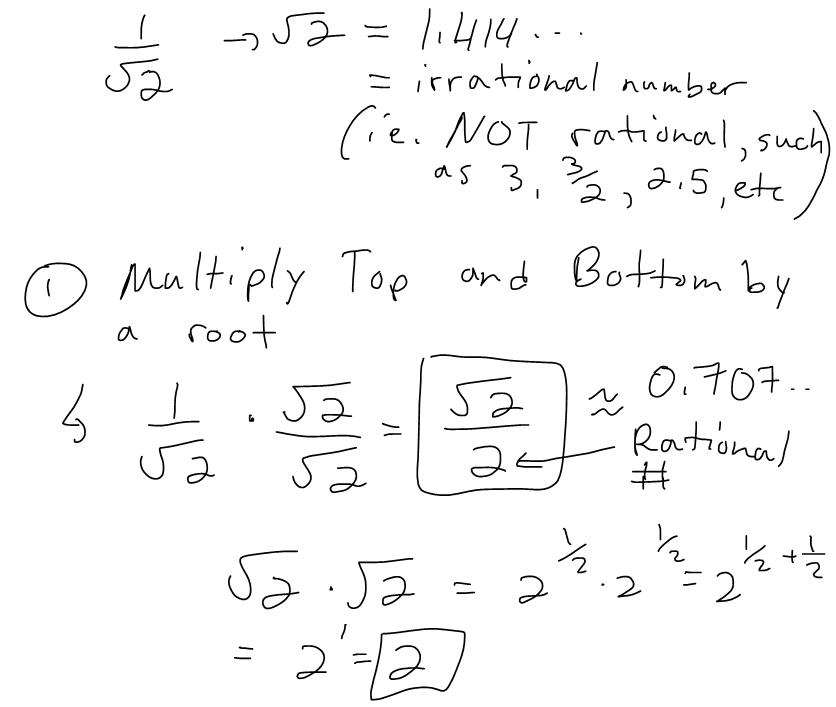 1/√2 → √2 = 1.414...
= irrational number
(i.e. NOT rational, such
as 3, 3/2, 2.5, etc)
① Multiply Top and Bottom by
a root
↳ 1/√2 · √2/√2 = √2/2 ≈ 0.707..
Rational
#
√2 · √2 = 2^1/2 · 2^1/2 = 2^1/2 + 1/2
= 2^1 = 2